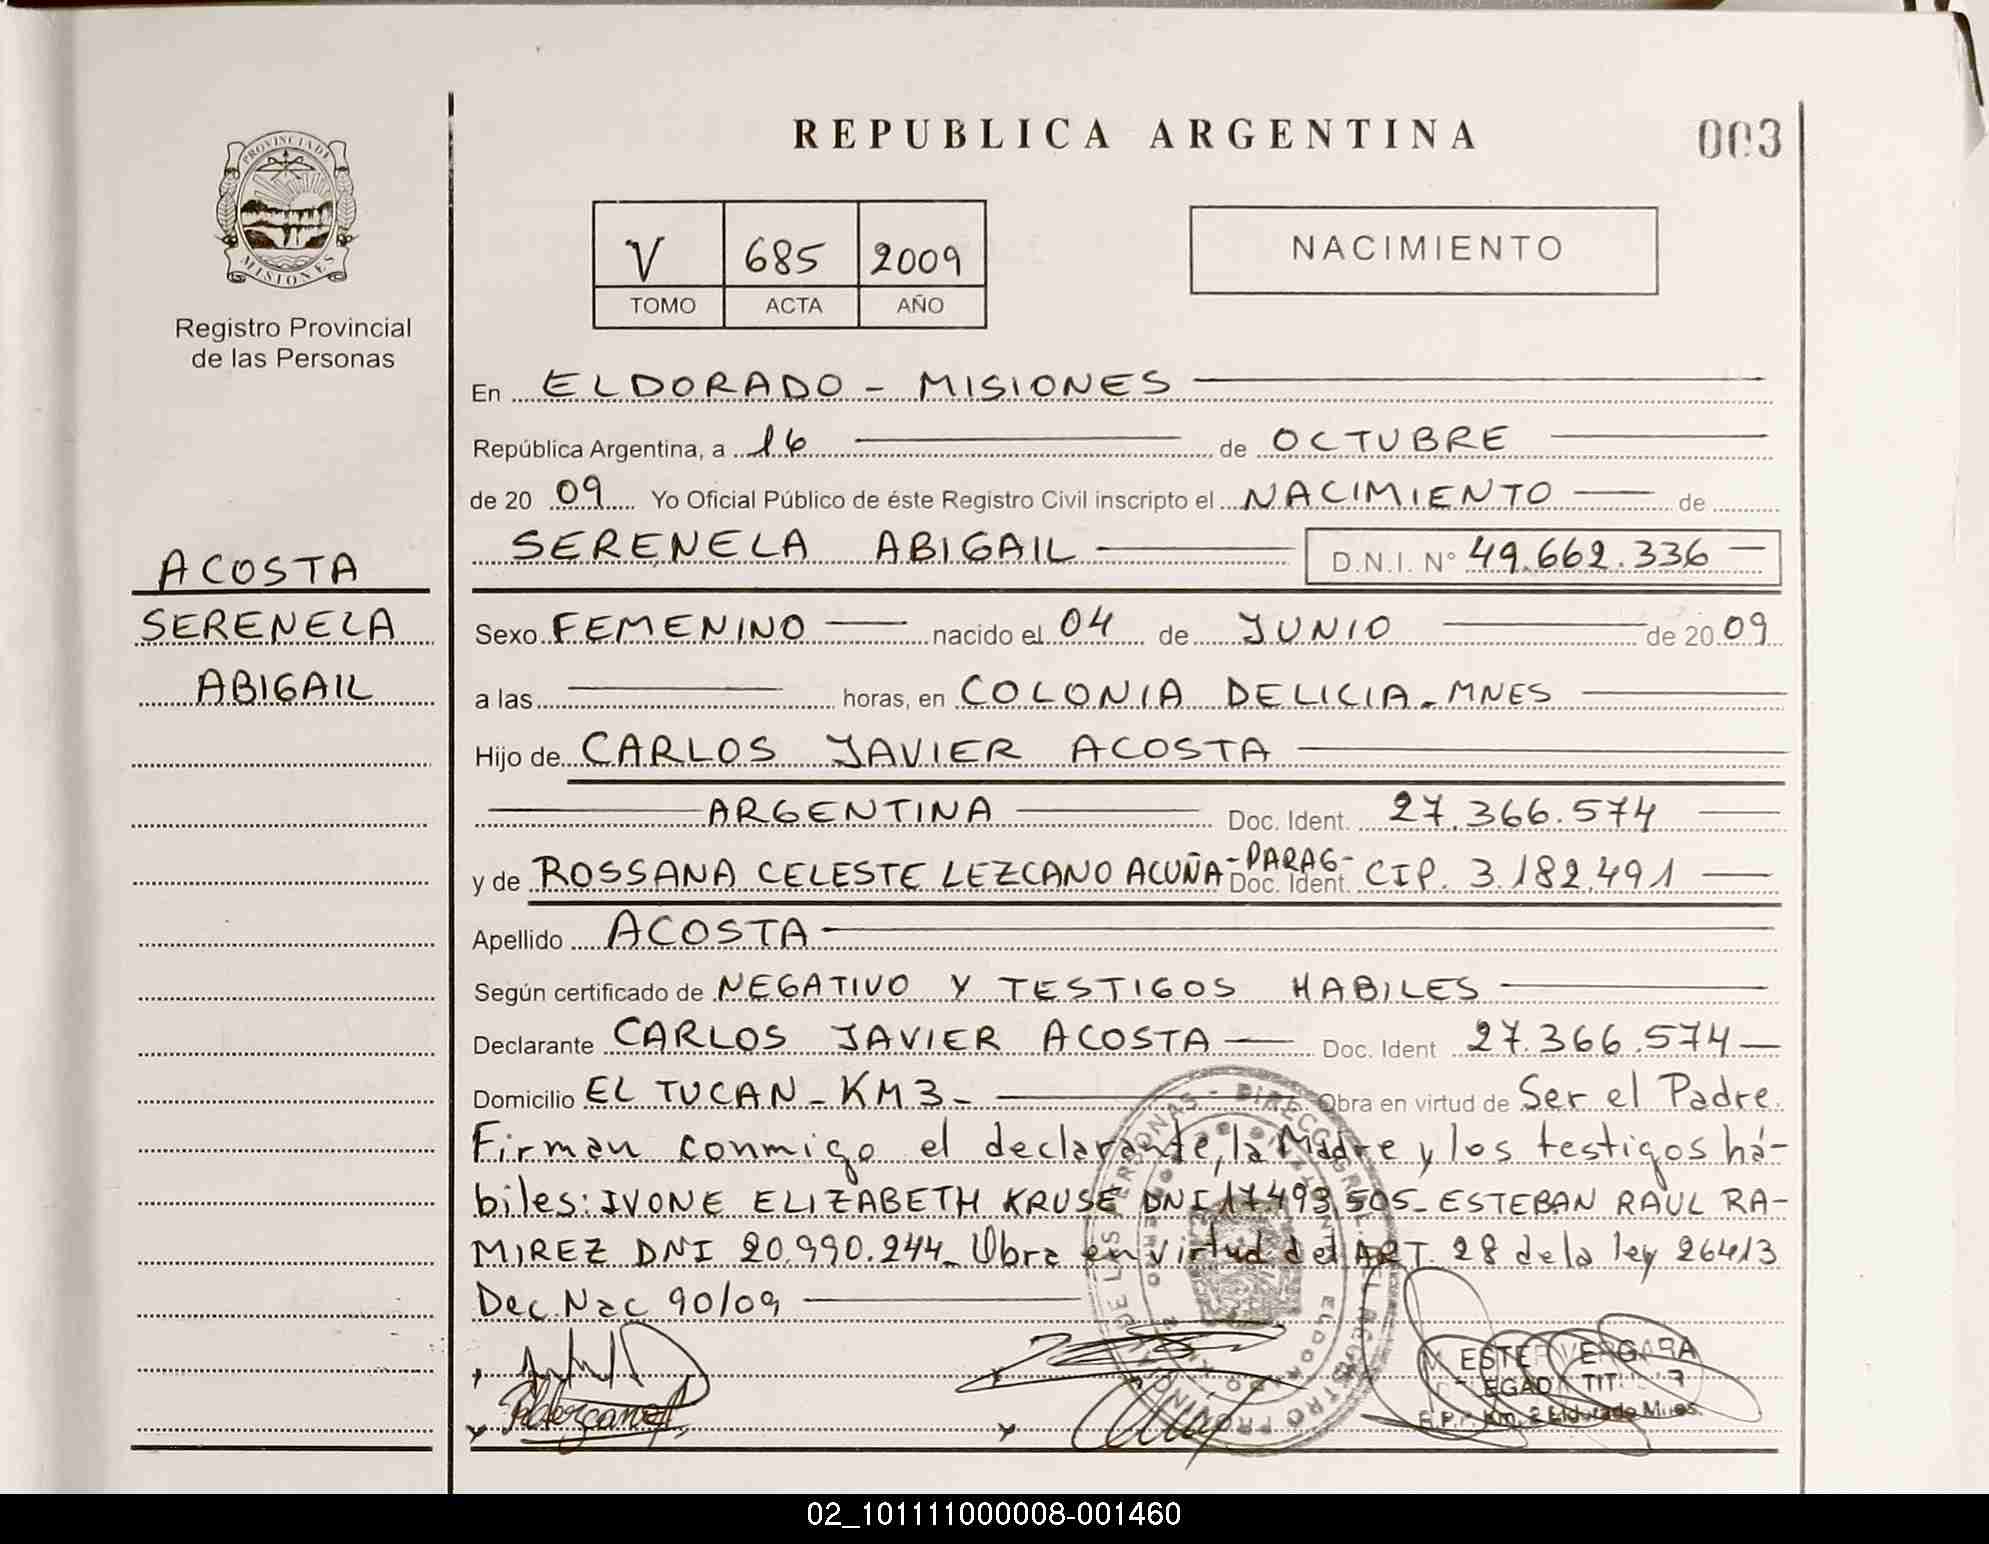 REPUBLICA ARGENTINA
003
PROVINCIA DE MISIONES
Registro Provincial
de las Personas
V 685 2009
TOMO ACTA AÑO
NACIMIENTO
En ELDORADO - MISIONES
República Argentina, a 16 de OCTUBRE
de 20 09 Yo Oficial Público de éste Registro Civil inscripto el NACIMIENTO de
SERENELA ABIGAIL D.N.I. N° 49.662.336
ACOSTA
SERENELA
ABIGAIL
Sexo FEMENINO nacido el 04 de JUNIO de 20 09
a las horas, en COLONIA DELICIA - MNES
Hijo de CARLOS JAVIER ACOSTA
ARGENTINA Doc. Ident. 27.366.574
y de ROSSANA CELESTE LEZCANO ACUÑA - PARAG - Doc. Ident. CIP. 3.182.491
Apellido ACOSTA
Según certificado de NEGATIVO Y TESTIGOS HABILES
Declarante CARLOS JAVIER ACOSTA Doc. Ident 27.366.574
Domicilio EL TUCAN - KM 3 - Obra en virtud de Ser el Padre.
Firman conmigo el declarante, la Madre y los testigos há-
biles: IVONE ELIZABETH KRUSE DNI 17.493.505- ESTEBAN RAUL RA-
MIREZ DNI 20.990.244- Obra en virtud del ART. 28 de la ley 26413
Dec. Nac 90/09
M. ESTER VERGARA
R.P.P. Km. 2 Eldorado Mnes.
02_101111000008-001460